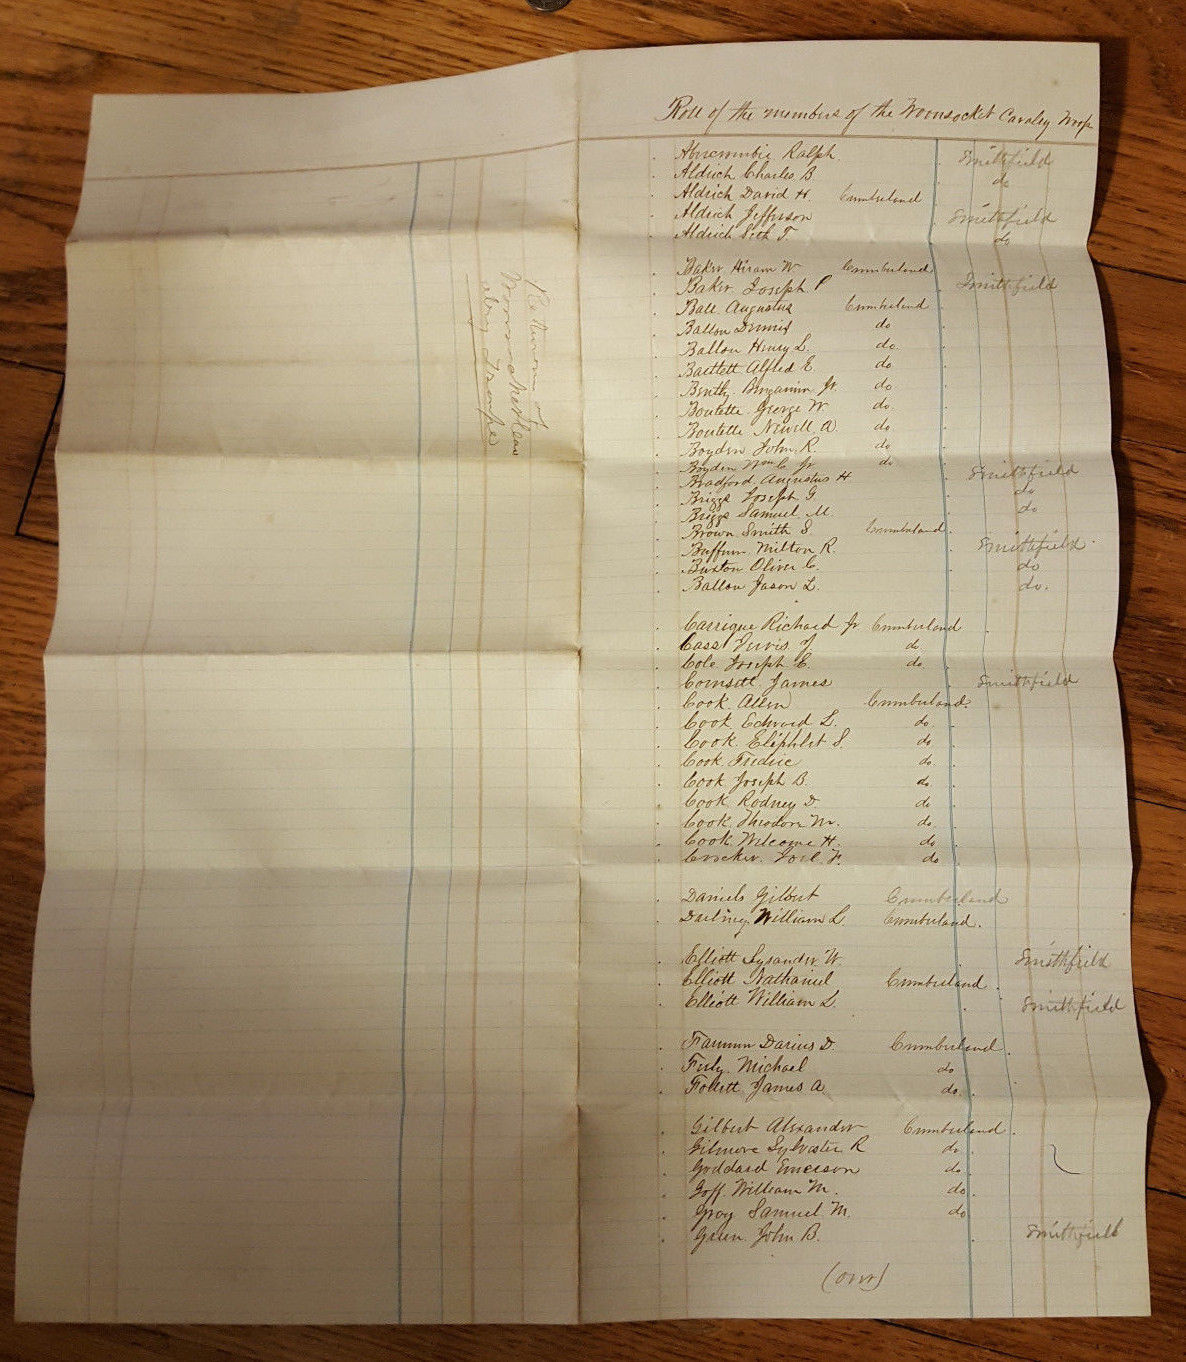 Roll of the members of the Woonsocket Cavaley Troop
Abercrombie Ralph Smithfield
Aldrich Charles B do
Aldrich David H. Cumberland
Aldrich Jefferson Smithfield
Aldrich Seth T. do
Baker Hiram W Cumberland
Baker Joseph P Smithfield
Ball Augustus Cumberland
Ballou Dennis do
Ballou Henry L. do
Bartlett Alfred E. do
Bently Benjamin Jr. do
Boutette George W do
Boutette Newell A do
Boyden John R. do
Boyden Wm C. Jr do
Bradford Augustus H Smithfield
Briggs Joseph G do
Briggs Samuel M. do
Brown Smith S. Cumberland
Buffum Milton R. Smithfield
Buxton Oliver C. do
Ballou Jason L. do.
Carrique Richard Jr Cumberland
Cass Jervis J do
Cole Joseph E. do
Comsett James Smithfield
Cook Allen Cumberland
Cook Edward L. do
Cook Eliphlet S. do
Cook Fredric do
Cook Joseph B. do
Cook Rodney D do
Cook Theodore M. do
Cook Welcome H. do
Crocker do
Daniels Gilbert Cumberland
Darling William L Cumberland.
Elliott Lysander W. Smithfield
Elliott Nathaniel Cumberland
Elliott William L. Smithfield
Farnum Darius D. Cumberland
Michael do
Follett James A do
Gilbert Alexander Cumberland
Gilmore Sylvester R do
Goddard Emerson do
Goff William M. do
Gray Samuel M. do
Green John B. Smithfield
(over)
Returns of
Woonsocket
Troops